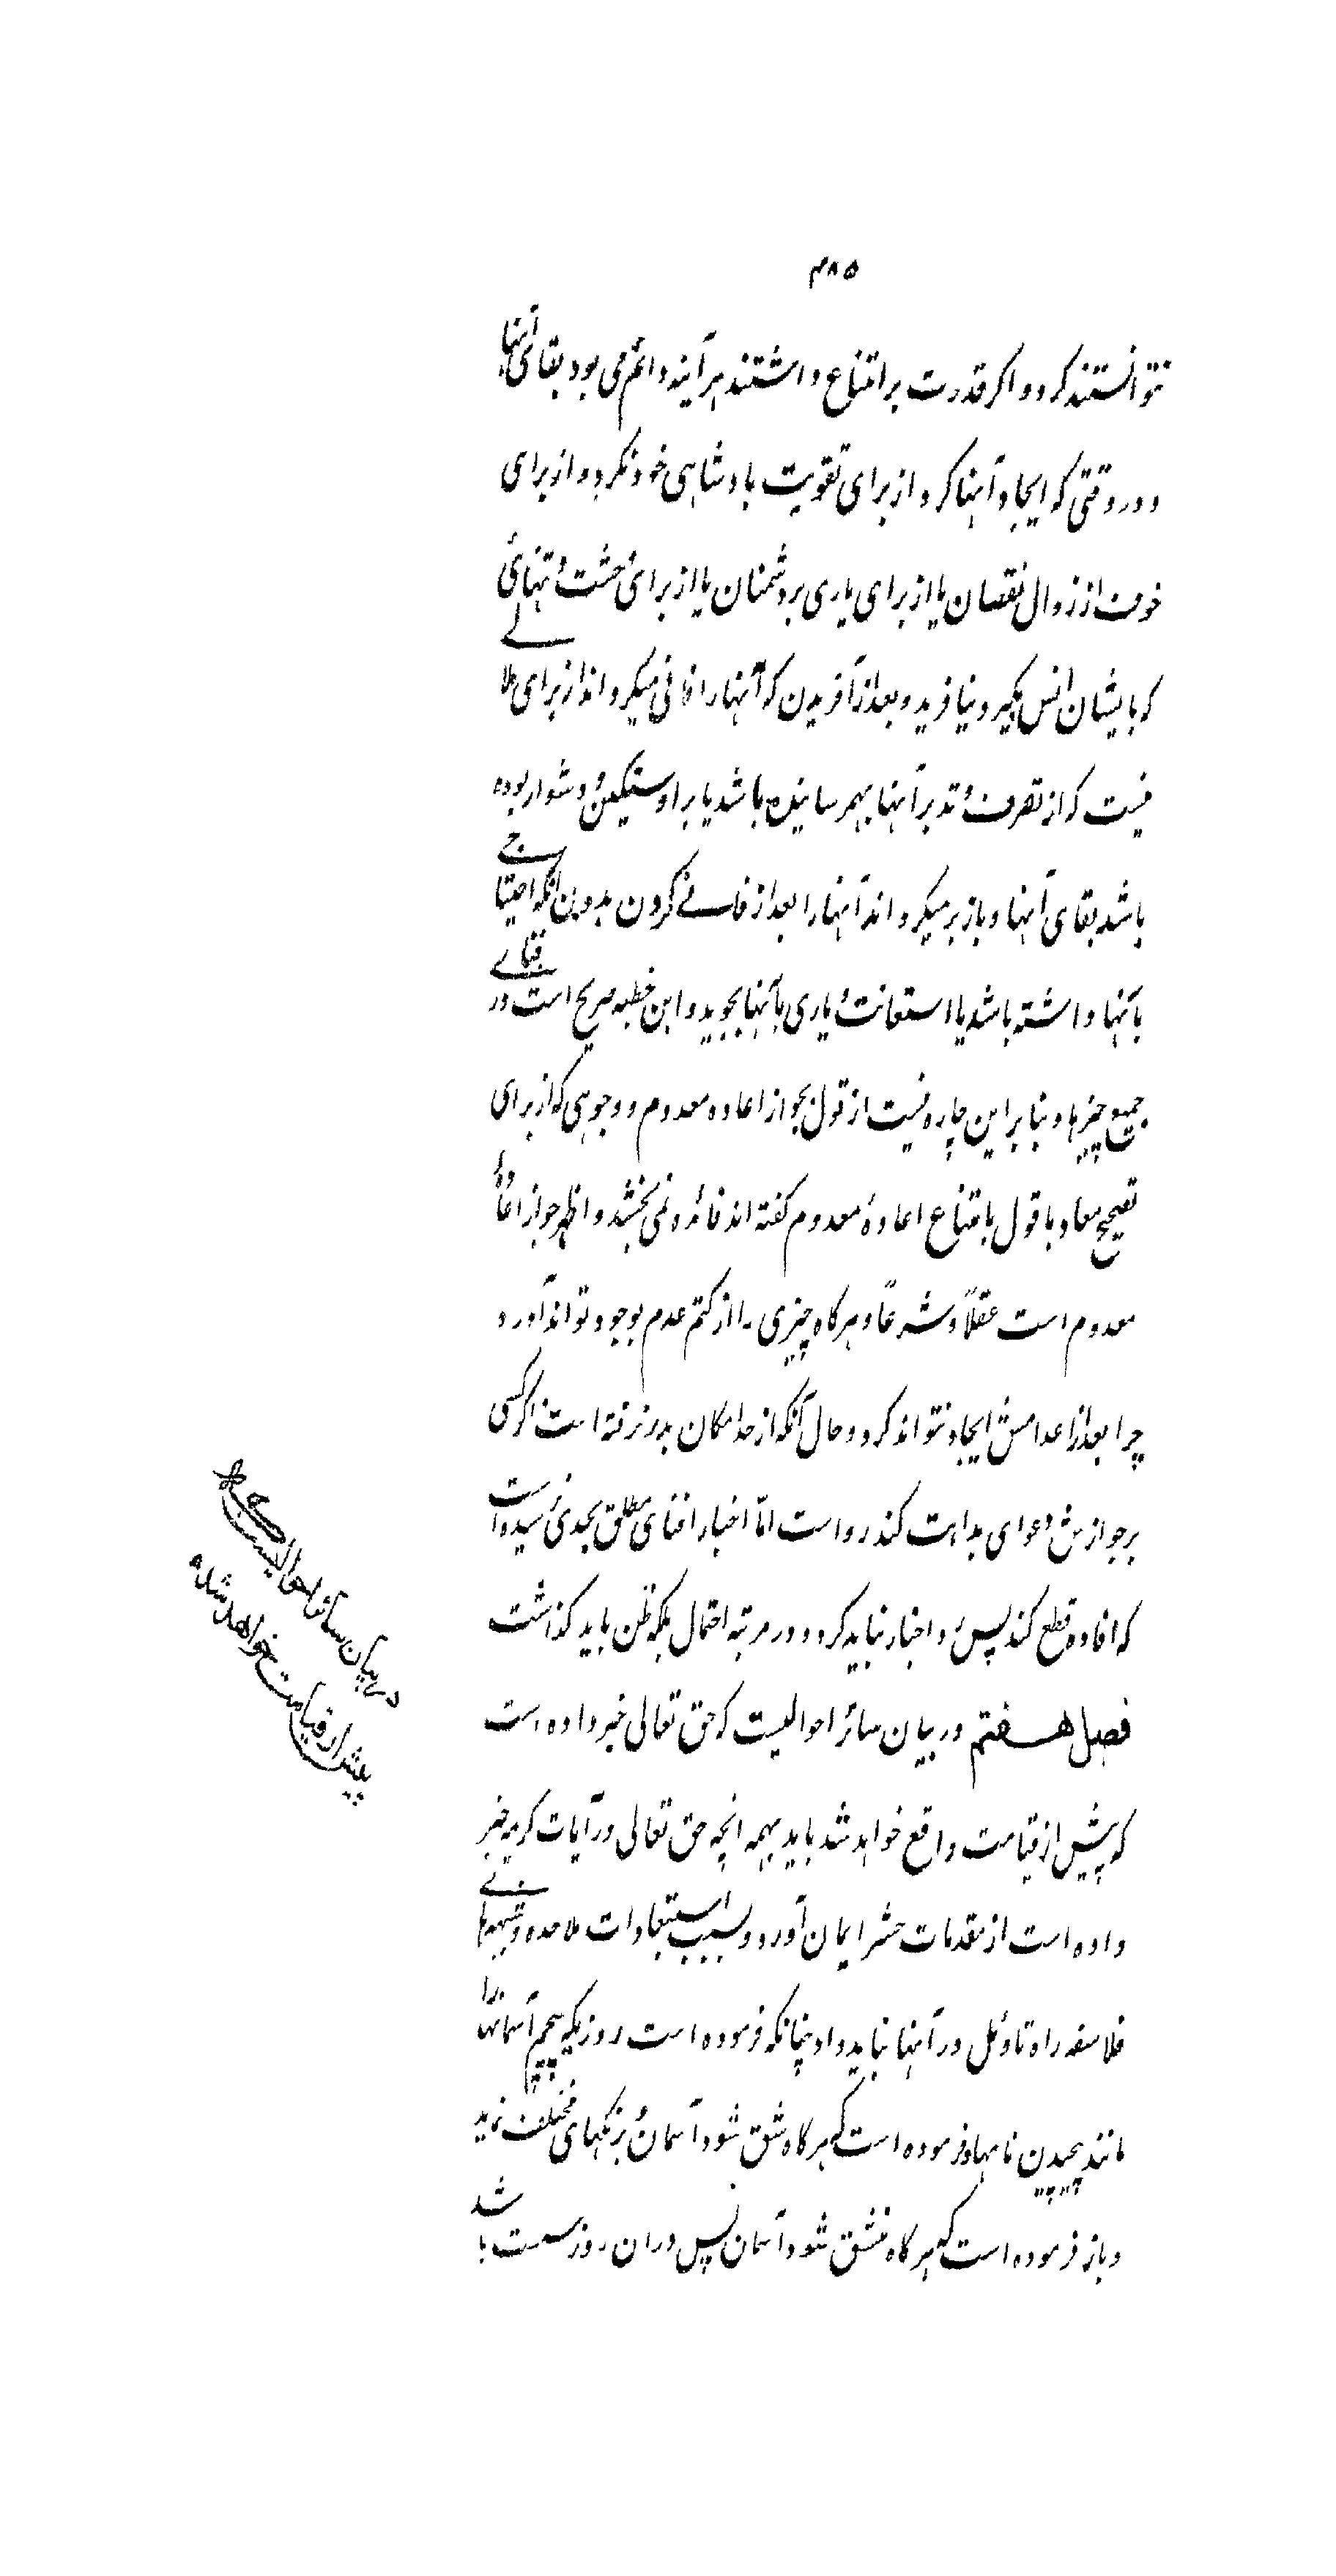 ۴۸۵
نتوانستند کرد و اگر قدرت بر امتناع داشتند هرآینه دائم می بود بقای آنها
و در وقتی که ایجاد آنها کرد از برای تقویت بادشاهی خود نکرد و از برای
خوف از زوال و نقصان یا از برای یاری بر دشمنان یا از برای وحشت و تنهائی
که بایشان انس بگیرد نیافرید و بعد از آفریدن که آنها را فانی میکرداند از برای ملالے
نیست که از تصرف و تدبیر آنها بهم رسانیده باشد یا بر او سنگین و دشوار بوده
باشد بقای آنها و باز برمیکرداند آنها را بعد از فانے کردن بدون آنکه احتیاجے
بآنها داشته باشد یا استعانت و یاری بآنها بجوید و این خطبه صریح است در فنائے
جمیع چیزها و بنابر این چاره نیست از قول بجواز اعاده معدوم و وجوهی که از برای
تصحیح معاد با قول بامتناع اعادهٔ معدوم کفته اند فائده نمی بخشد و اظهر جواز اعادهٔ
معدوم است عقلاً و شرعاً و هرکاه چیزی را از کتم عدم بوجود تواند آورد
چرا بعد از اعدامش ایجاد نتواند کرد و حال آنکه از حد امکان بدر نرفته است اکر کسی
بر جوازش دعوای بداهت کند رواست امّا اخبار افنای مطلق بحدی نرسیده است
که افاده قطع کند پس رد اخبار نباید کرد و در مرتبه احتمال بلکه ظن باید کذاشت
فصل هفتم در بیان سائر احوالیست که حق تعالی خبر داده است
که پیش از قیامت واقع خواهد شد باید بهمه انچه حق تعالی در آیات کریمه خبر
داده است از مقدمات حشر ایمان آورد و بسبب استبعادات ملاحده و شبهه‌هائے
فلاسفه راه تاویل در آنها نباید داد چنانکه فرموده است روزیکه بپیچیم آسمانها را
مانند پیچیدن نامها و فرموده است که هرکاه شق شود آسمان و برنکهای مختلف نماید
و باز فرموده است که هرکاه منشق شود آسمان پس در ان روز سست باشد
در بیان سائر احوالیست که
پیش از قیامت خواهد شد